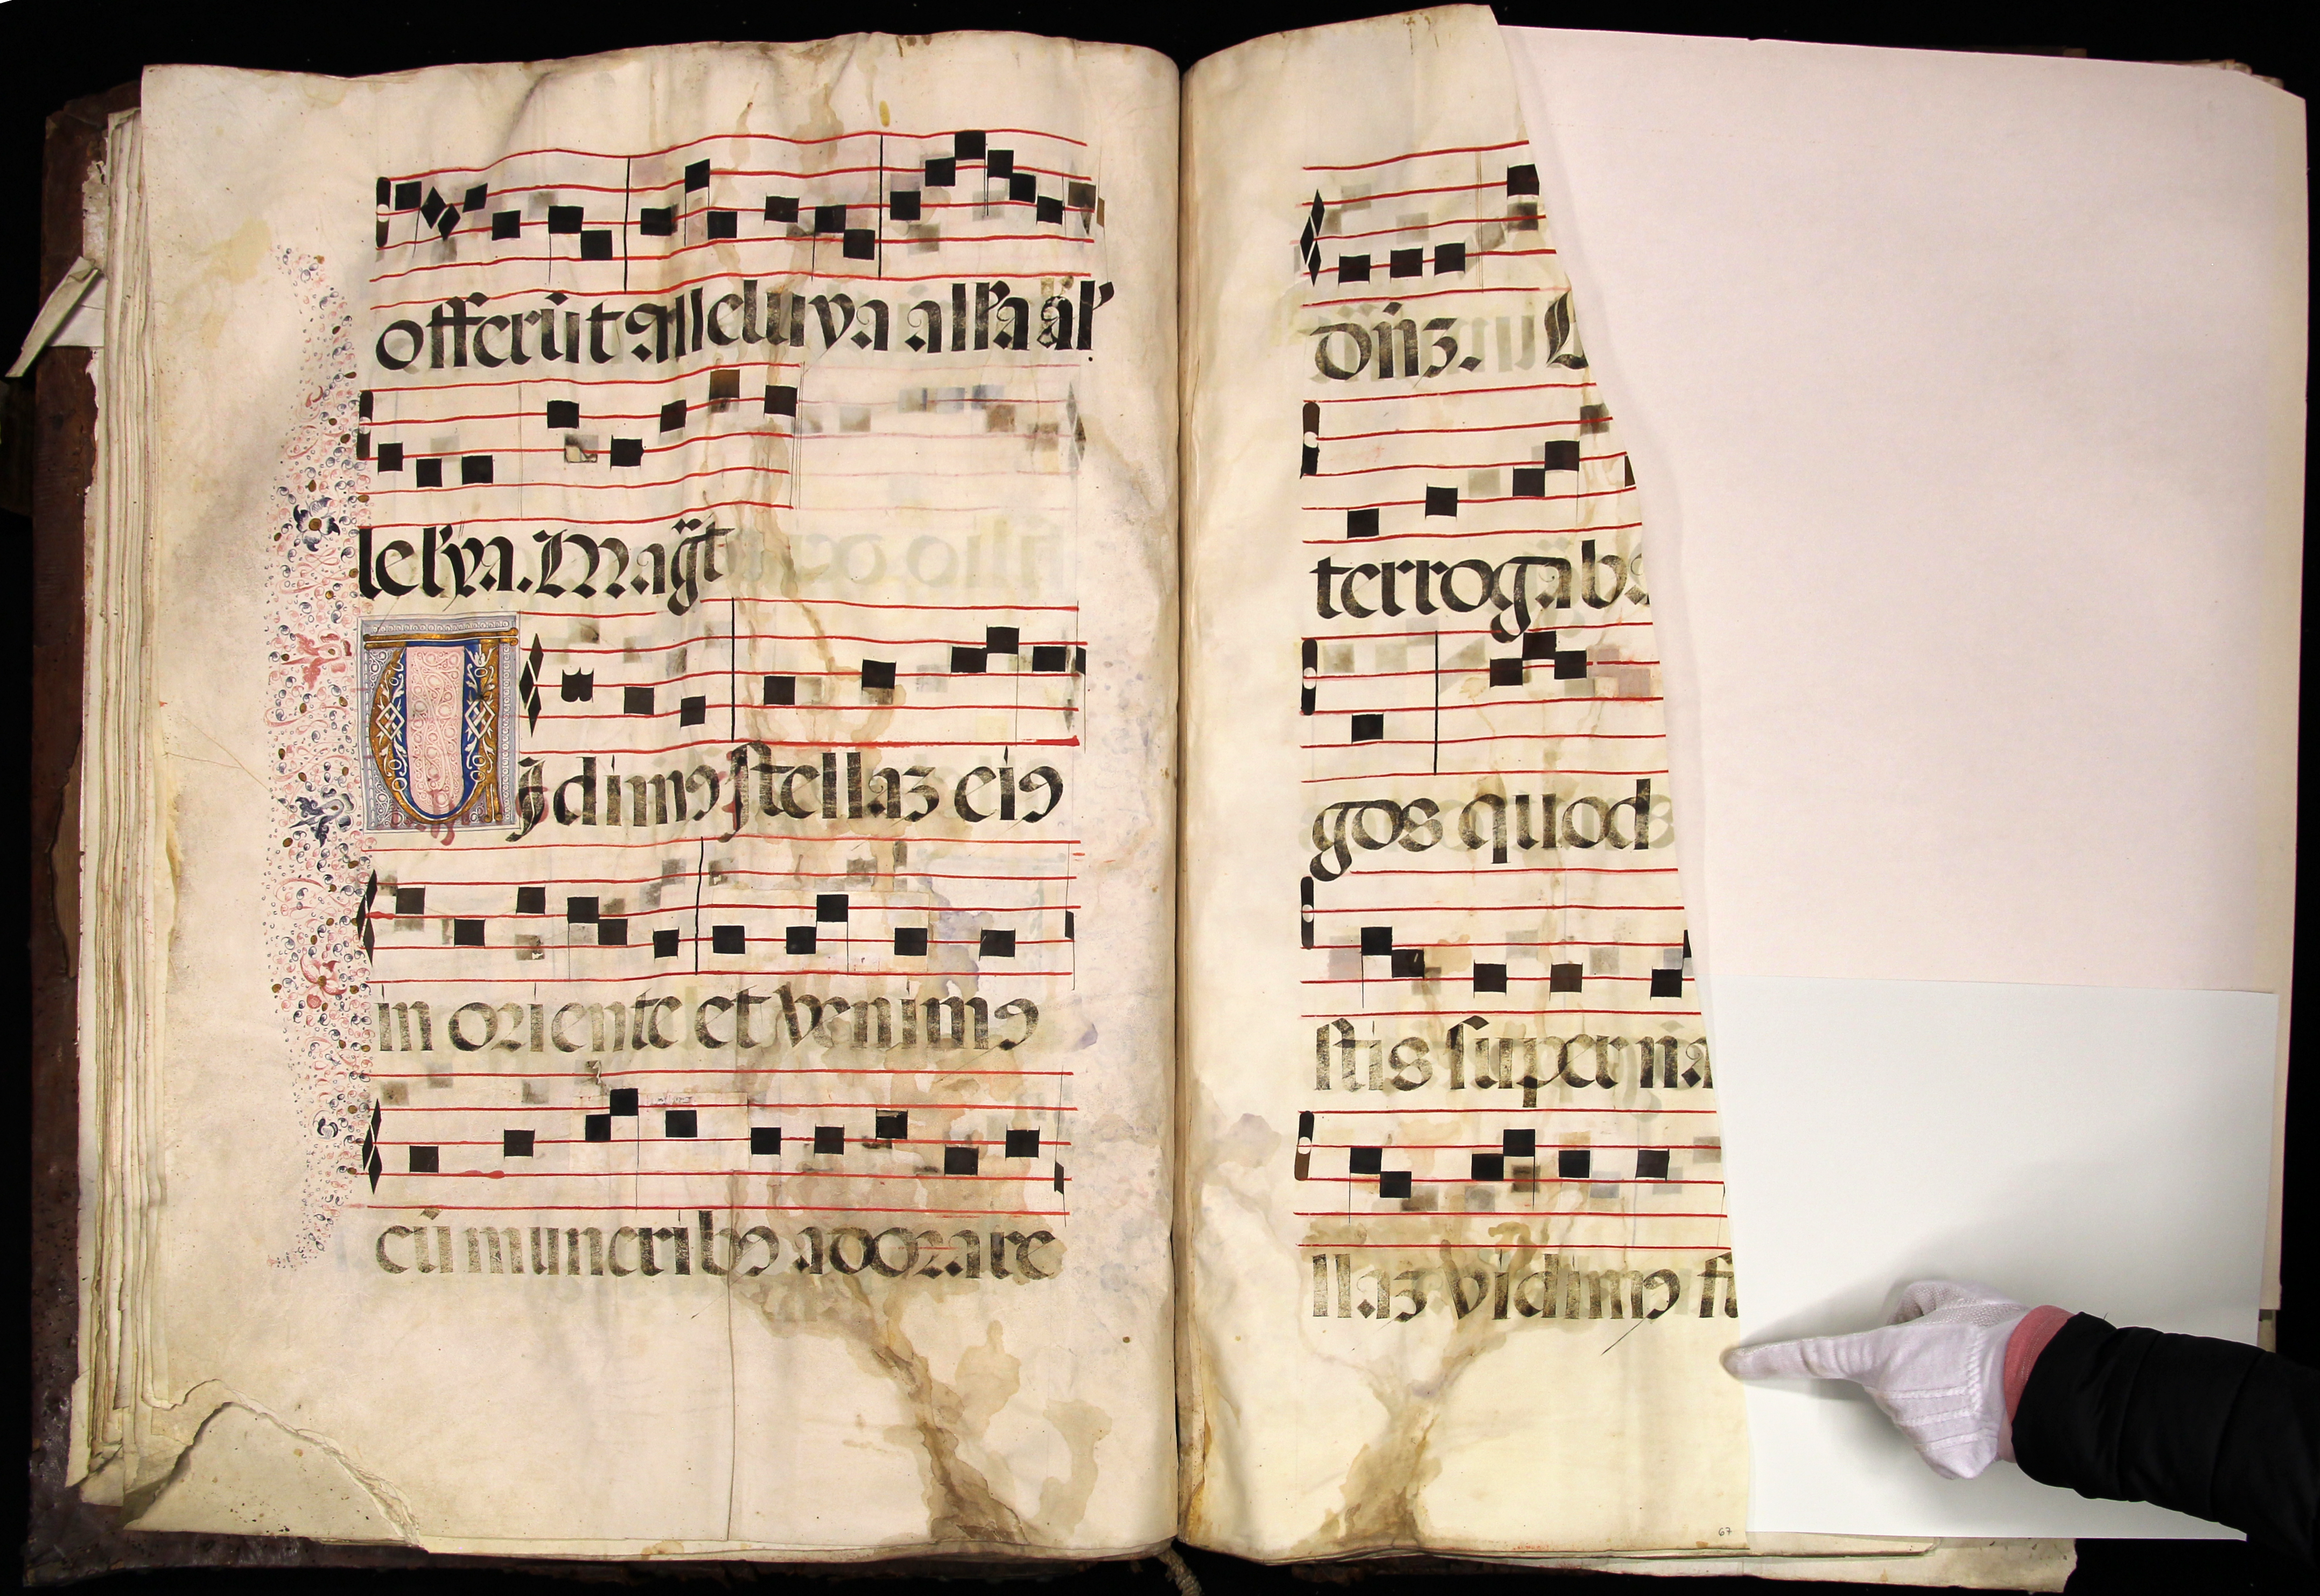 offerūt alleluya alła al'
lełya. Mag̃t
Uidimꝯ stellaz eiꝯ
in oriente et venimꝯ
cū muneribꝯ adorare
dñz.
terrogab
gos quod
stis super na
llaz vidimꝯ
67